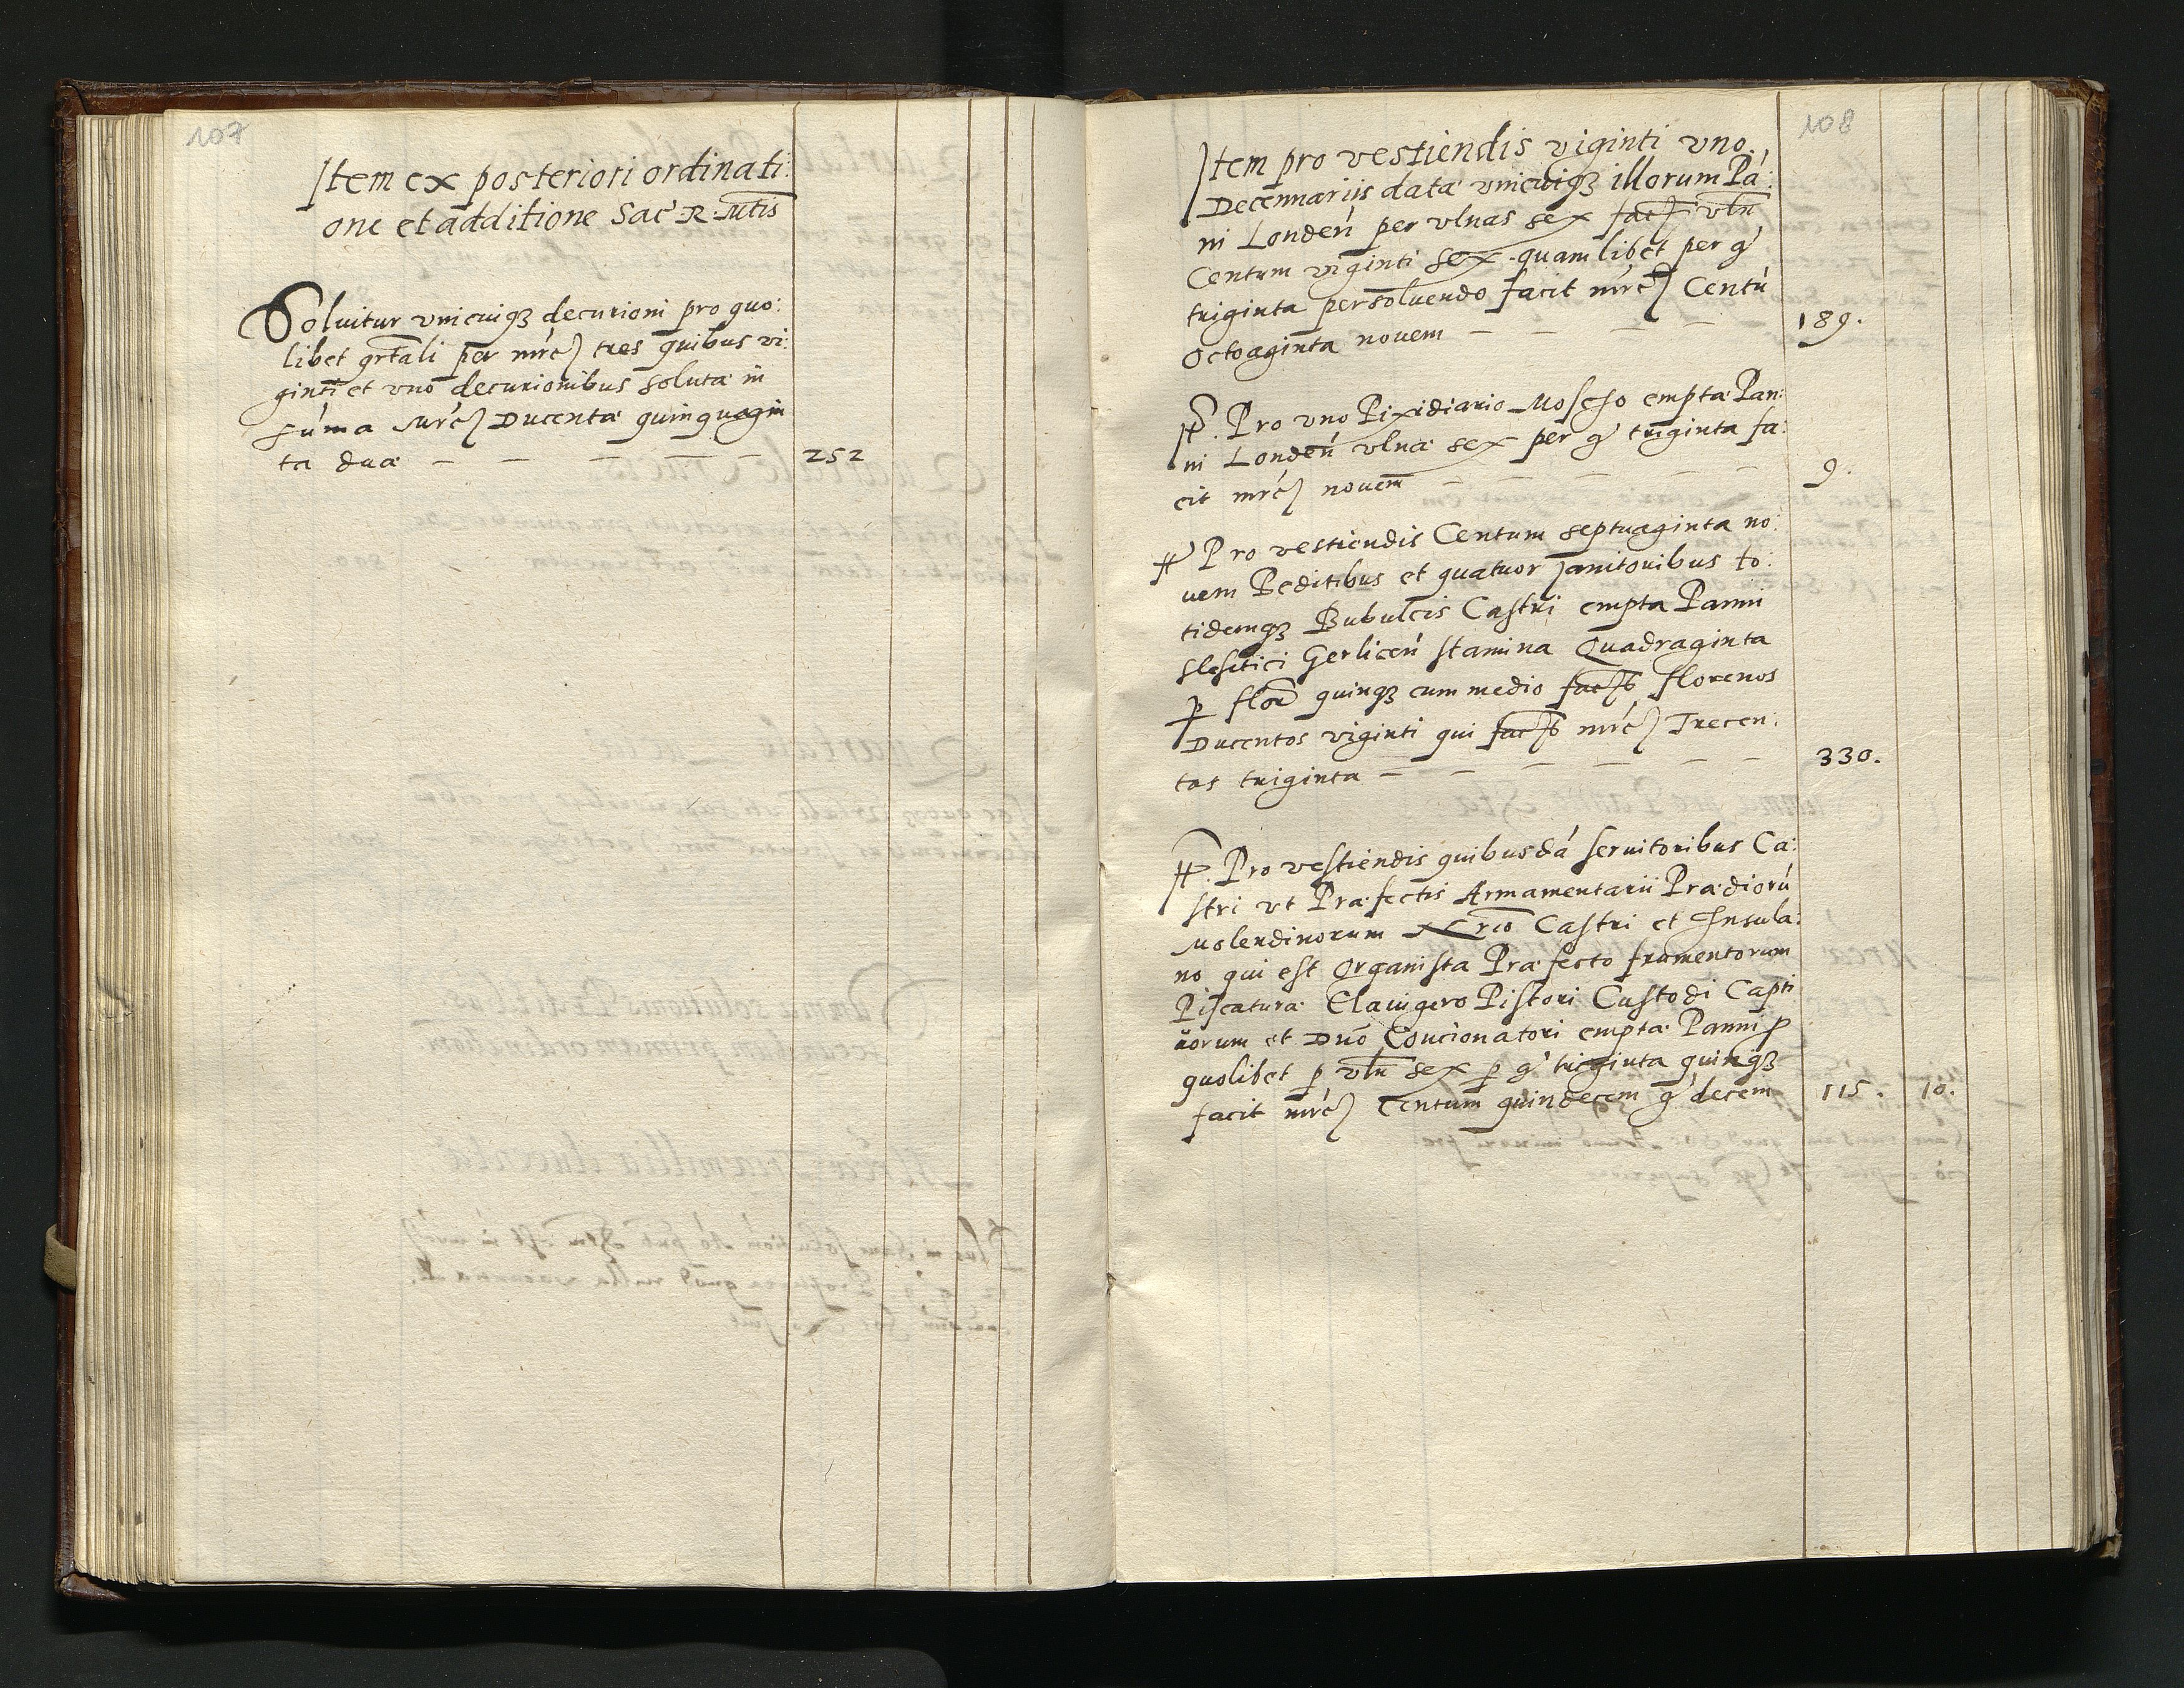 107
Item ex posteriori ordinati:
one et additione Sac: R: Mtis
Soluitur vnicuiqꝫ decurioni pro quo:
libet qrtali per mrć tres quibus vi:
ginti et vno decurionibus soluta in
suma Mrć Ducenta quinquagin
ta dua — — — — — 252
108
Item pro vestiendis viginti vno
Decennariis data vnicuiqꝫ illorum Pá:
ni Londeń per vlnas sex fact vln
Centum viginti sex quamlibet per g
triginta persoluendo facit mrć Centú
Octoaginta nouem — — — — 189.
It. Pro vno Pixidiario Moscho empta Pan:
ni Londeń vlna sex per g triginta fa:
cit mrć nouem — — — — — 9.
It Pro vestiendis Centum septuaginta no:
uem Peditibus et quatuor Janitoribus to:
tidemqꝫ Bubulcis Castri empta Panni
slesitici Gerliceń stamina Quadraginta
p flor quinqꝫ cum medio fact florenos
Ducentos viginti qui fact mrć Trecen:
tas triginta — — — — — — 330.
It. Pro vestiendis quibusdá seruitoribus Ca:
stri vt Præfectis Armamentarii Prædiorú
Molendinorum Castri et Insula:
no qui est Organista Præfecto frumentorum
Piscatura Clauigero Pistori Custodi Capti
uorum et Duo Concionatori empta Panni p
quolibet p vln sex p g triginta quinqꝫ
facit mrć Centum quindecem g decem 115. 10.